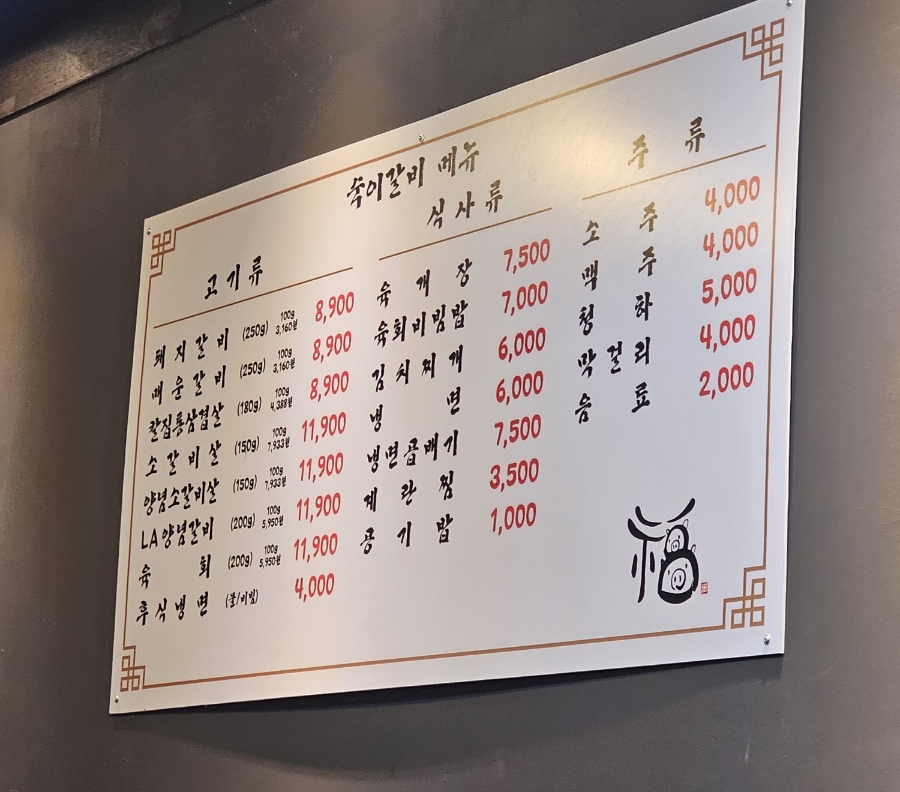 숙이갈비 메뉴
고기류
돼지갈비 (250g) 100g 3,160원 8,900
매운갈비 (250g) 100g 3,160원 8,900
칼집통삼겹살 (180g) 100g 4,388원 8,900
소갈비살 (150g) 100g 7,933원 11,900
양념소갈비살 (150g) 100g 7,933원 11,900
LA양념갈비 (200g) 100g 5,950원 11,900
육회 (200g) 100g 5,950원 11,900
후식냉면 (물/비빔) 4,000
식사류
육개장 7,500
육회비빔밥 7,000
김치찌개 6,000
냉면 6,000
냉면곱배기 7,500
계란찜 3,500
공기밥 1,000
주류
소주 4,000
맥주 4,000
청하 5,000
막걸리 4,000
음료 2,000
福